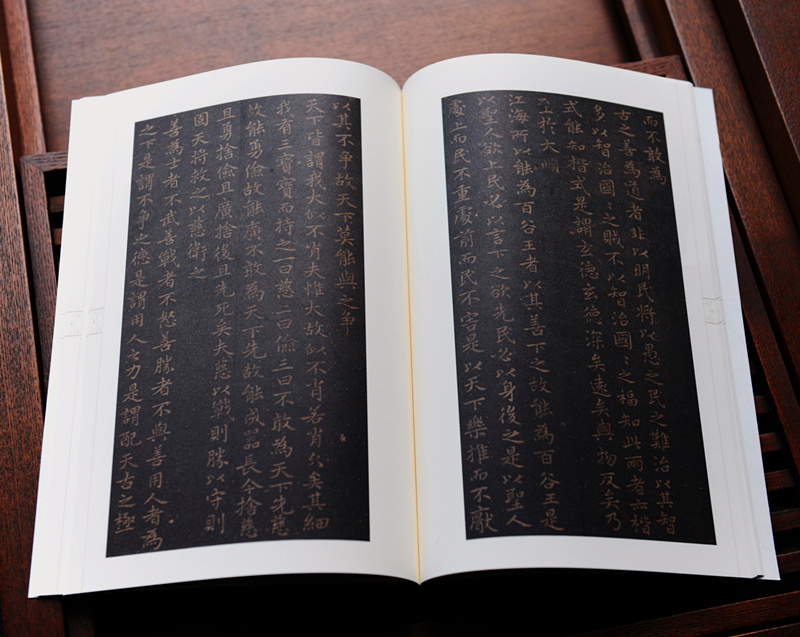 而不敢為
古之善為道者非以明民將以愚之民之難治以其智
多以智治國〻之賊不以智治國〻之福知此兩者亦楷
式能知楷式是謂玄德玄德深矣遠矣與物反矣乃
至於大順
江海所以能為百谷王者以其善下之故能為百谷王是
以聖人欲上民必以言下之欲先民必以身後之是以聖人
處上而民不重處前而民不害是以天下樂推而不厭
以其不爭故天下莫能與之爭
天下皆謂我大似不肖夫惟大故似不肖若肖久矣其細
我有三寶寶而持之一曰慈二曰儉三曰不敢為天下先慈
故能勇儉故能廣不敢為天下先故能成器長今捨慈
且勇捨儉且廣捨後且先死矣夫慈以戰則勝以守則
固天將救之以慈衛之
善為士者不武善戰者不怒善勝者不與善用人者為
之下是謂不爭之德是謂用人之力是謂配天古之極